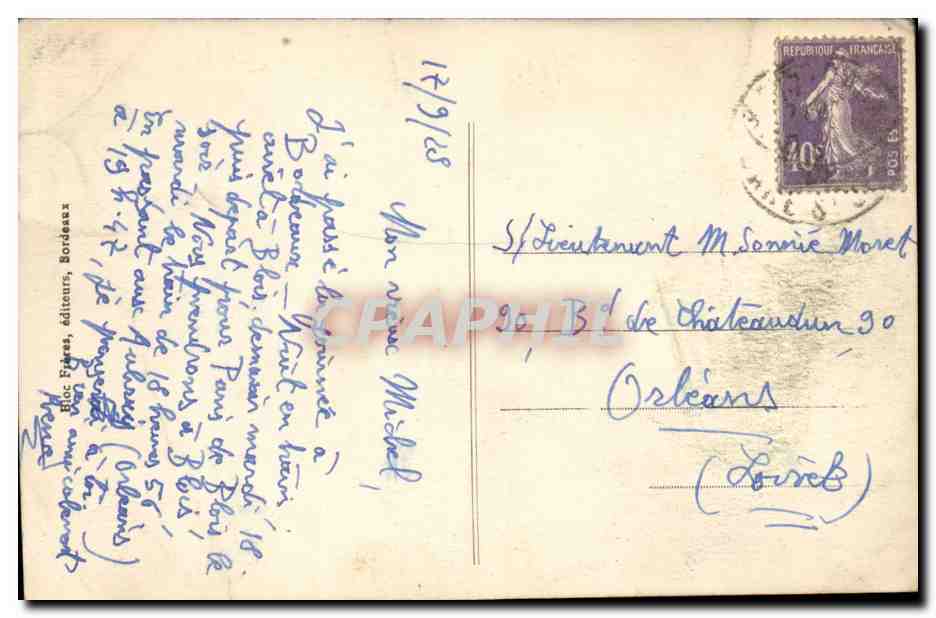 17/9/28
Mon vieux Michel,
J'ai passé la journée à
Bordeaux - Nuit en train
arrêt à Blois demain mardi 18
puis départ pour Paris de Blois le
soir Nous prendrons à Blois
mardi le train de 18 heures 56
En passant aux Aubrais (Orléans)
à 19 h. 47, je penserai à toi
Bien amicalement
Bloc Frères, éditeurs, Bordeaux
REPUBLIQUE FRANÇAISE
40c
POSTES
S/Lieutenant M. Sonnié Moret
90 Bd de Châteaudun 90
Orléans
(Loiret)
CPAPHIL